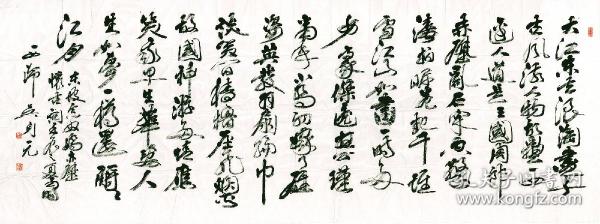 大江东去浪淘尽千
古风流人物故垒西
边人道是三国周郎
赤壁乱石穿空惊
涛拍岸卷起千堆
雪江山如画一时多
少豪杰遥想公瑾
当年小乔初嫁了雄
姿英发羽扇纶巾
谈笑间樯橹灰飞烟灭
故国神游多情应
笑我早生华发人
生如梦一樽还酹
江月
东坡念奴娇赤壁
怀古词
孔夫子旧书网